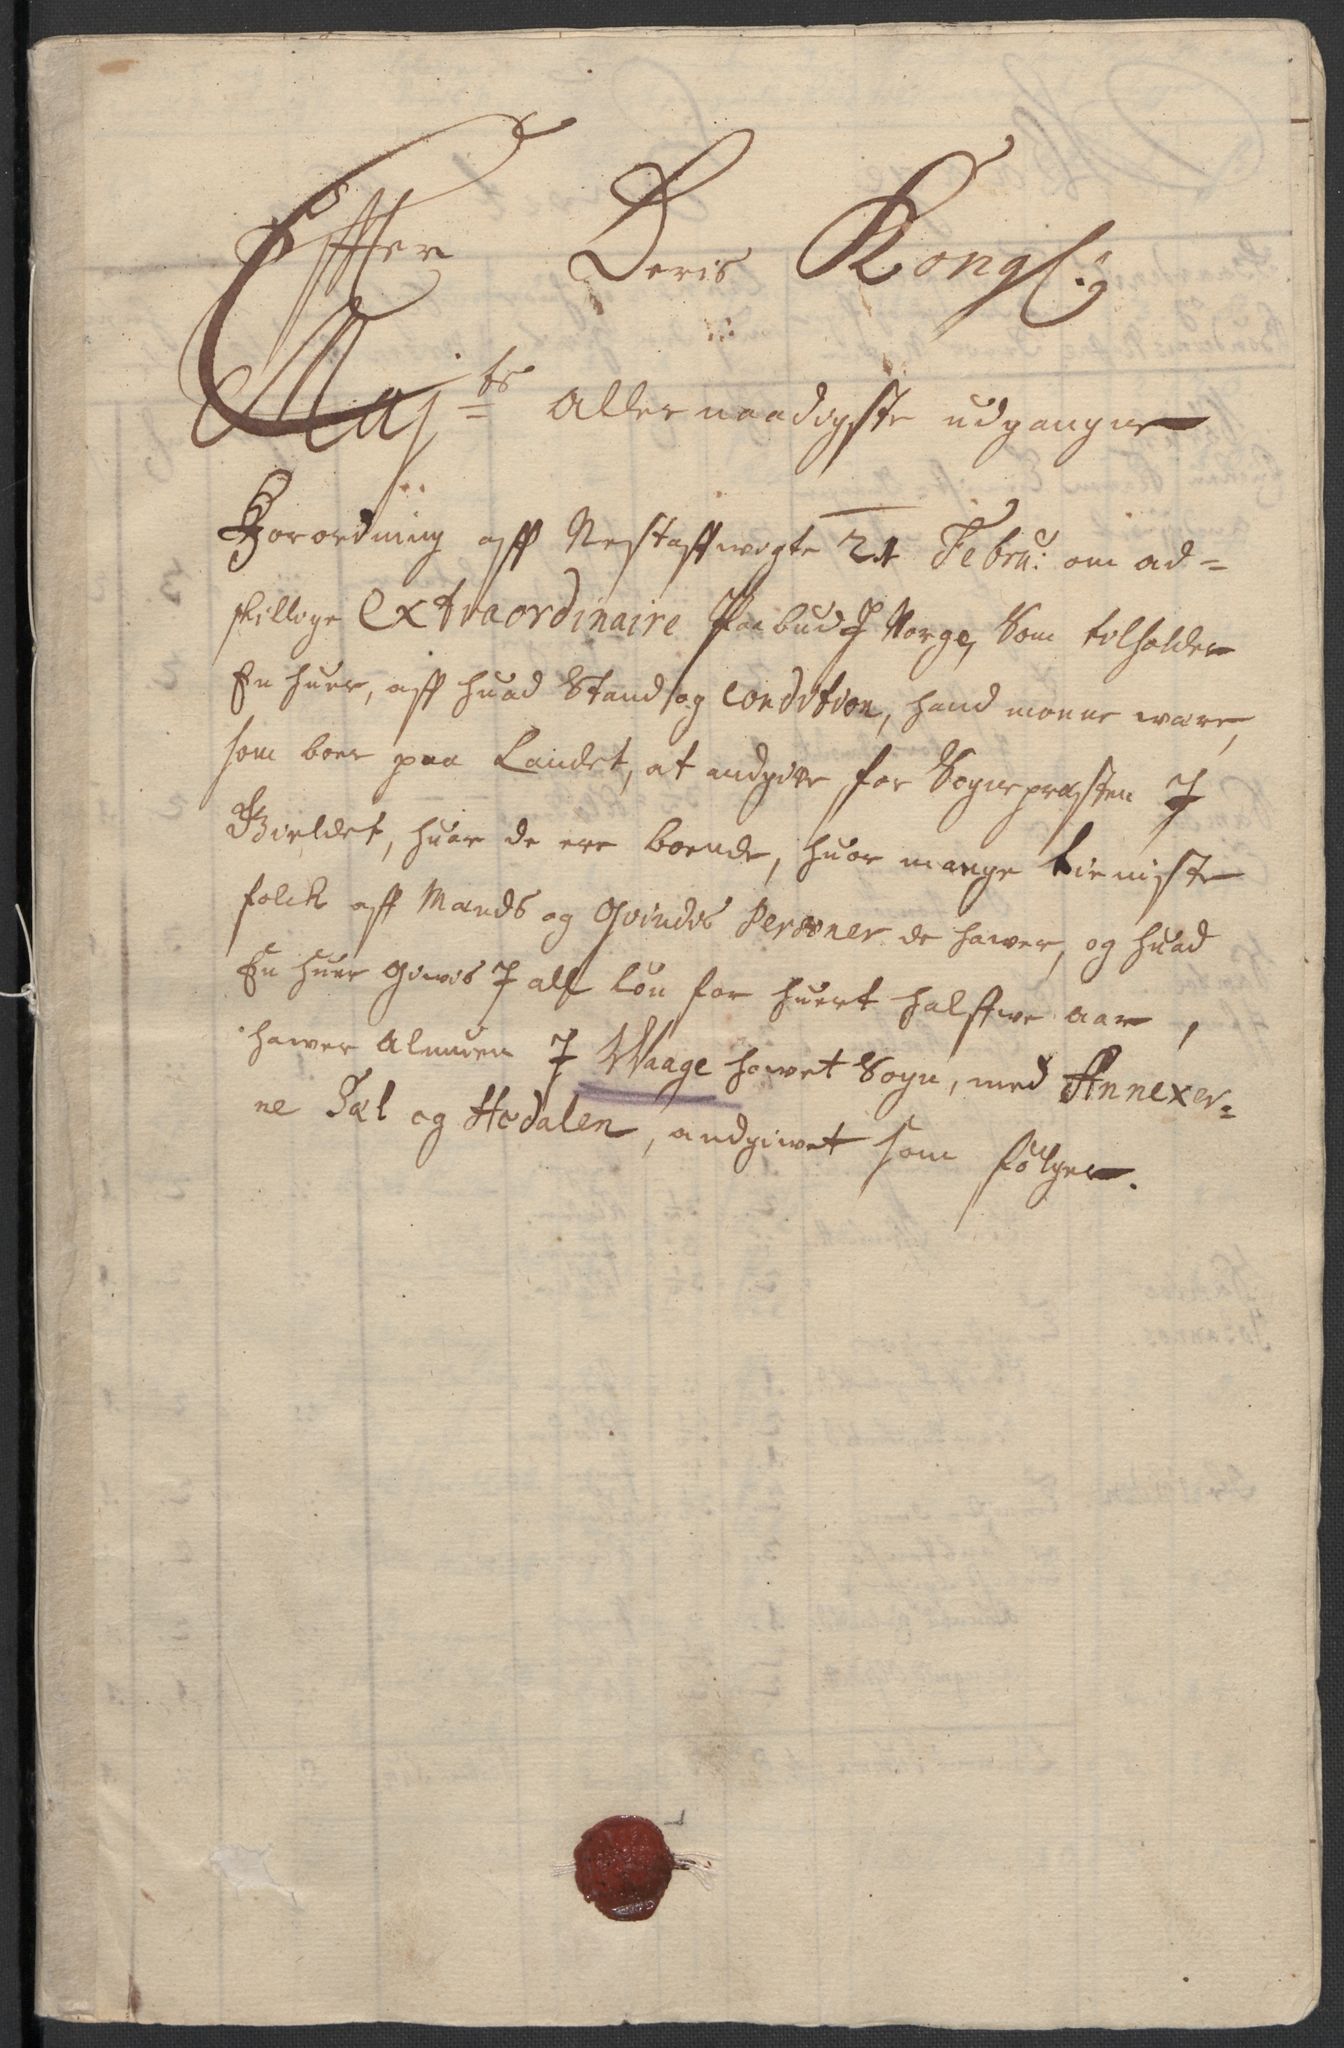 Effter Deris Kongl:
Maj:ts Aller naadigste udgangne
Forordning aff Nestafvigte 21 Febru: om ad=
skillige extraordinaire Paabud J Norge, Som tilholder
En huer, aff huad Stand og condition, hand monne were,
som boer paa Landet, at andgive for Sognepræsten J
Gieldet, huor de ere boende, huor mange tienniste
folck aff Mands og Qvindes Personer de hawer, og huad
En huer Giwis J all lön for huert halffwe aar,
hawer Almuen J Waage howet Sogn, med Annexer=
ne Sæl og Hedalen, andgiwet som fölger.